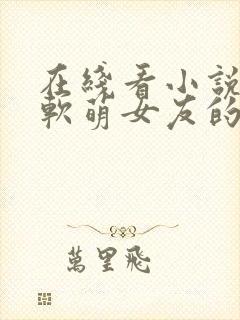 在綫看小說
軟萌女友的
萬里飛